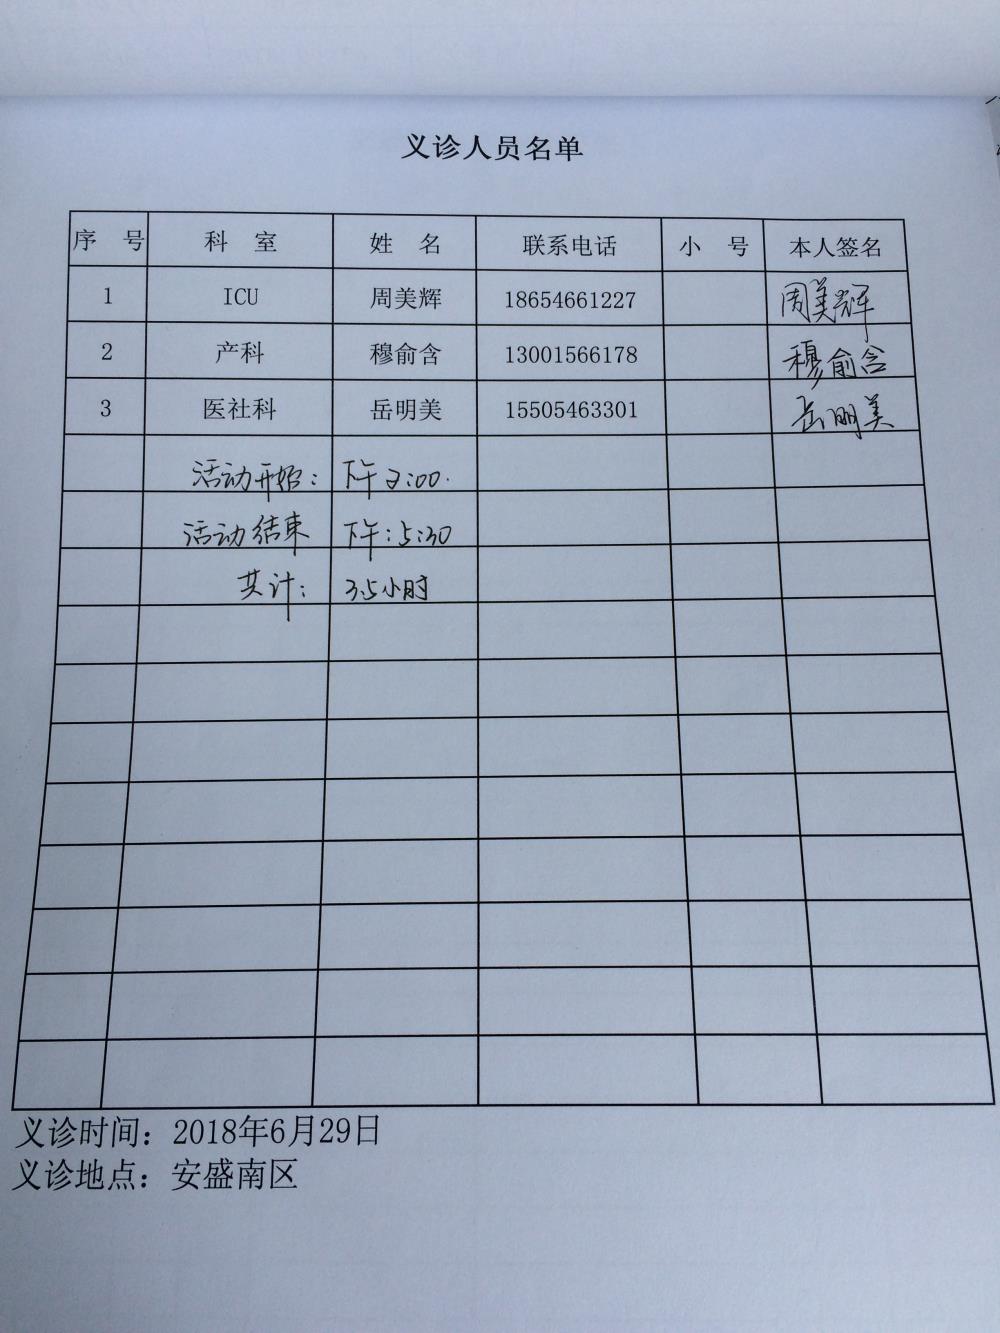 义诊人员名单
序 号 科 室 姓 名 联系电话 小 号 本人签名
1 ICU 周美辉 18654661227 周美辉
2 产科 穆俞含 13001566178 穆俞含
3 医社科 岳明美 15505463301 岳明美
活动开始： 下午2:00.
活动结束 下午:5:30
共计： 3.5小时
义诊时间：2018年6月29日
义诊地点：安盛南区